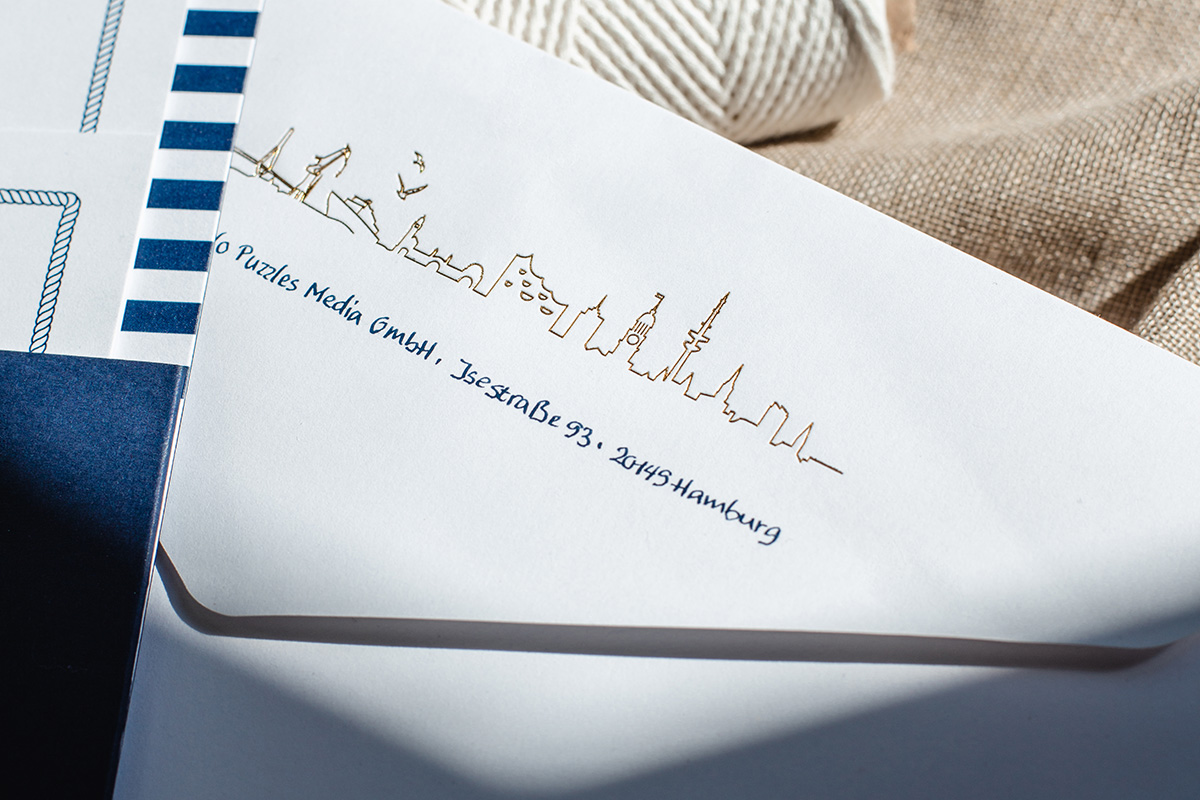 /o Puzzles Media GmbH, Isestraße 93 · 20149 Hamburg